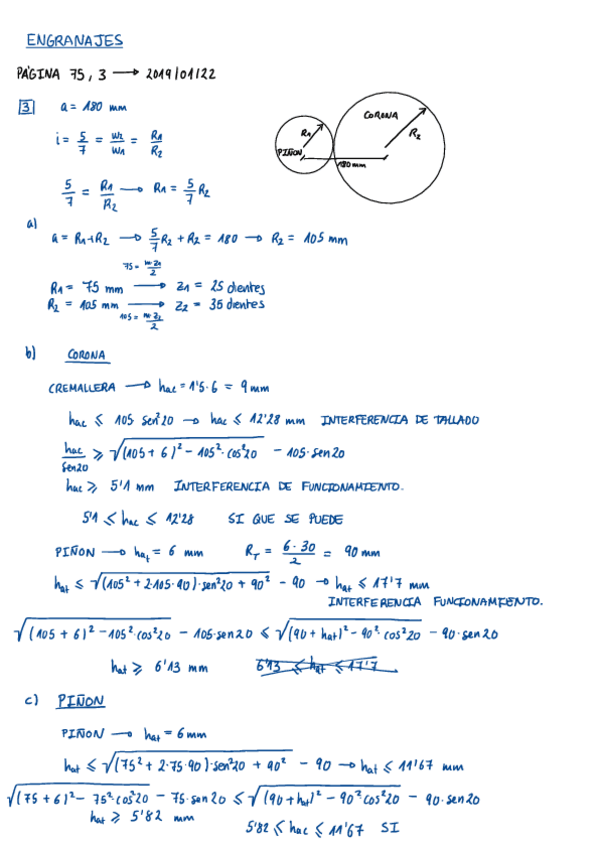 ENGRANAJES
PÁGINA 75, 3 → 2019/01/22
3 a = 180 mm
i = 5/7 = W2/W1 = R1/R2
CORONA
R1
R2
PIÑON
180 mm
5/7 = R1/R2 → R1 = 5/7 R2
a)
a = R1+R2 → 5/7 R2 + R2 = 180 → R2 = 105 mm
75 = m·Z1/2
R1 = 75 mm → Z1 = 25 dientes
R2 = 105 mm → Z2 = 35 dientes
105 = m·Z2/2
b) CORONA
CREMALLERA → hac = 1'5·6 = 9 mm
hac ≤ 105 sen²20 → hac ≤ 12'28 mm INTERFERENCIA DE TALLADO
hac/sen20 ≥ √((105+6)² - 105²·cos²20) - 105·sen20
hac ≥ 5'1 mm INTERFERENCIA DE FUNCIONAMIENTO.
5'1 ≤ hac ≤ 12'28 SI QUE SE PUEDE
PIÑON → hat = 6 mm RT = 6·30/2 = 90 mm
hat ≤ √((105² + 2·105·90)·sen²20 + 90²) - 90 → hat ≤ 17'7 mm
INTERFERENCIA FUNCIONAMIENTO.
√((105+6)² - 105²·cos²20) - 105·sen20 ≤ √((90+hat)² - 90²·cos²20) - 90·sen20
hat ≥ 6'13 mm 6'13 ≤ hat ≤ 17'7
c) PIÑON
PIÑON → hat = 6 mm
hat ≤ √((75² + 2·75·90)·sen²20 + 90²) - 90 → hat ≤ 11'67 mm
√((75+6)² - 75²·cos²20) - 75·sen20 ≤ √((90+hat)² - 90²·cos²20) - 90·sen20
hat ≥ 5'82 mm
5'82 ≤ hac ≤ 11'67 SI